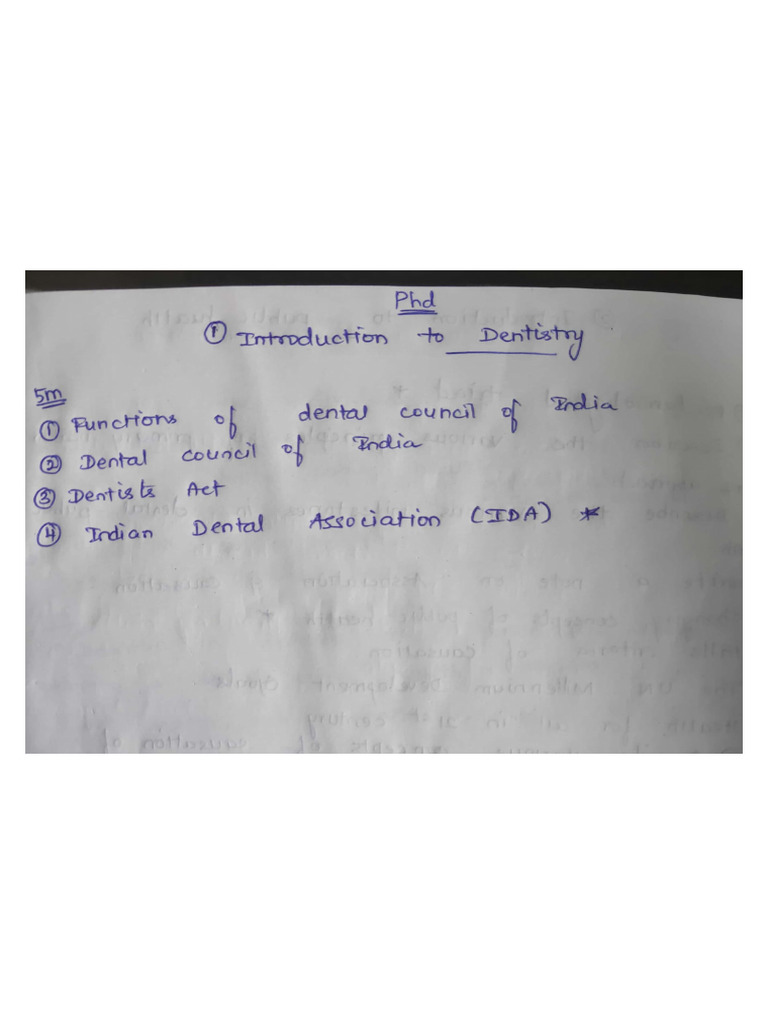 Phd
① Introduction to Dentistry
5m
① Functions of dental council of India
② Dental council of India
③ Dentists Act
④ Indian Dental Association (IDA) *